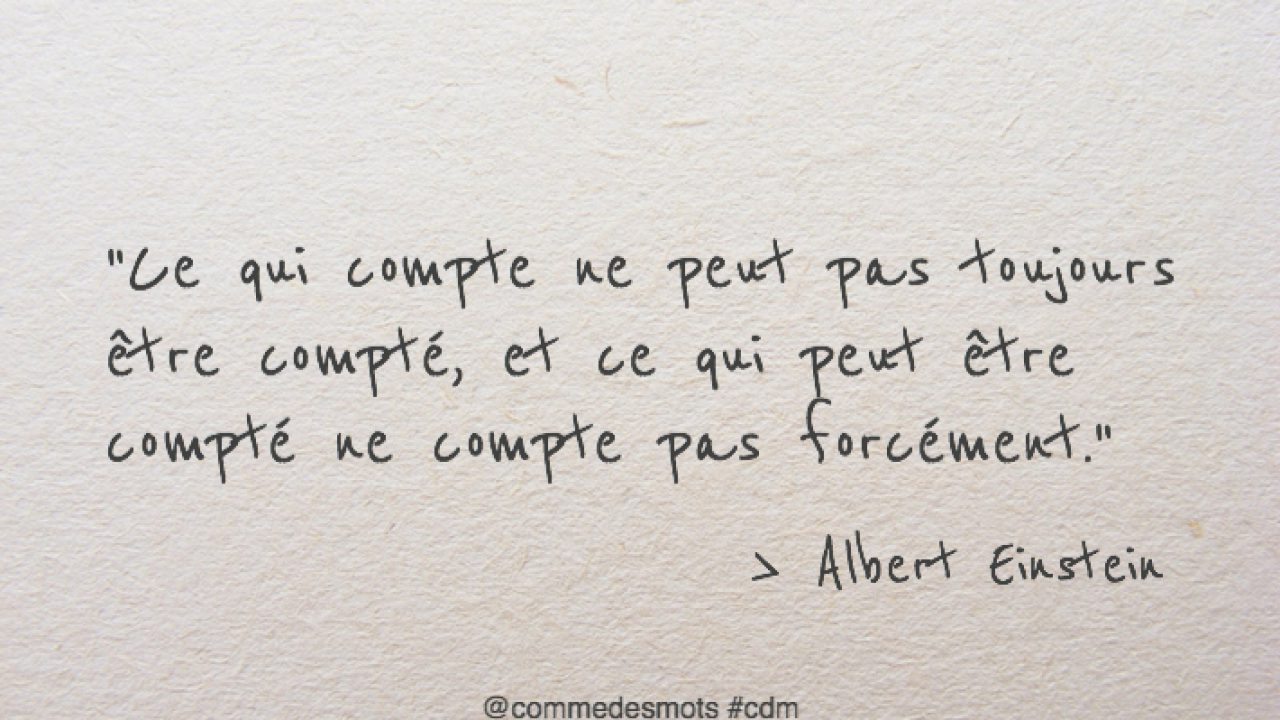 "Ce qui compte ne peut pas toujours
être compté, et ce qui peut être
compté ne compte pas forcément."
> Albert Einstein
@commedesmots #cdm